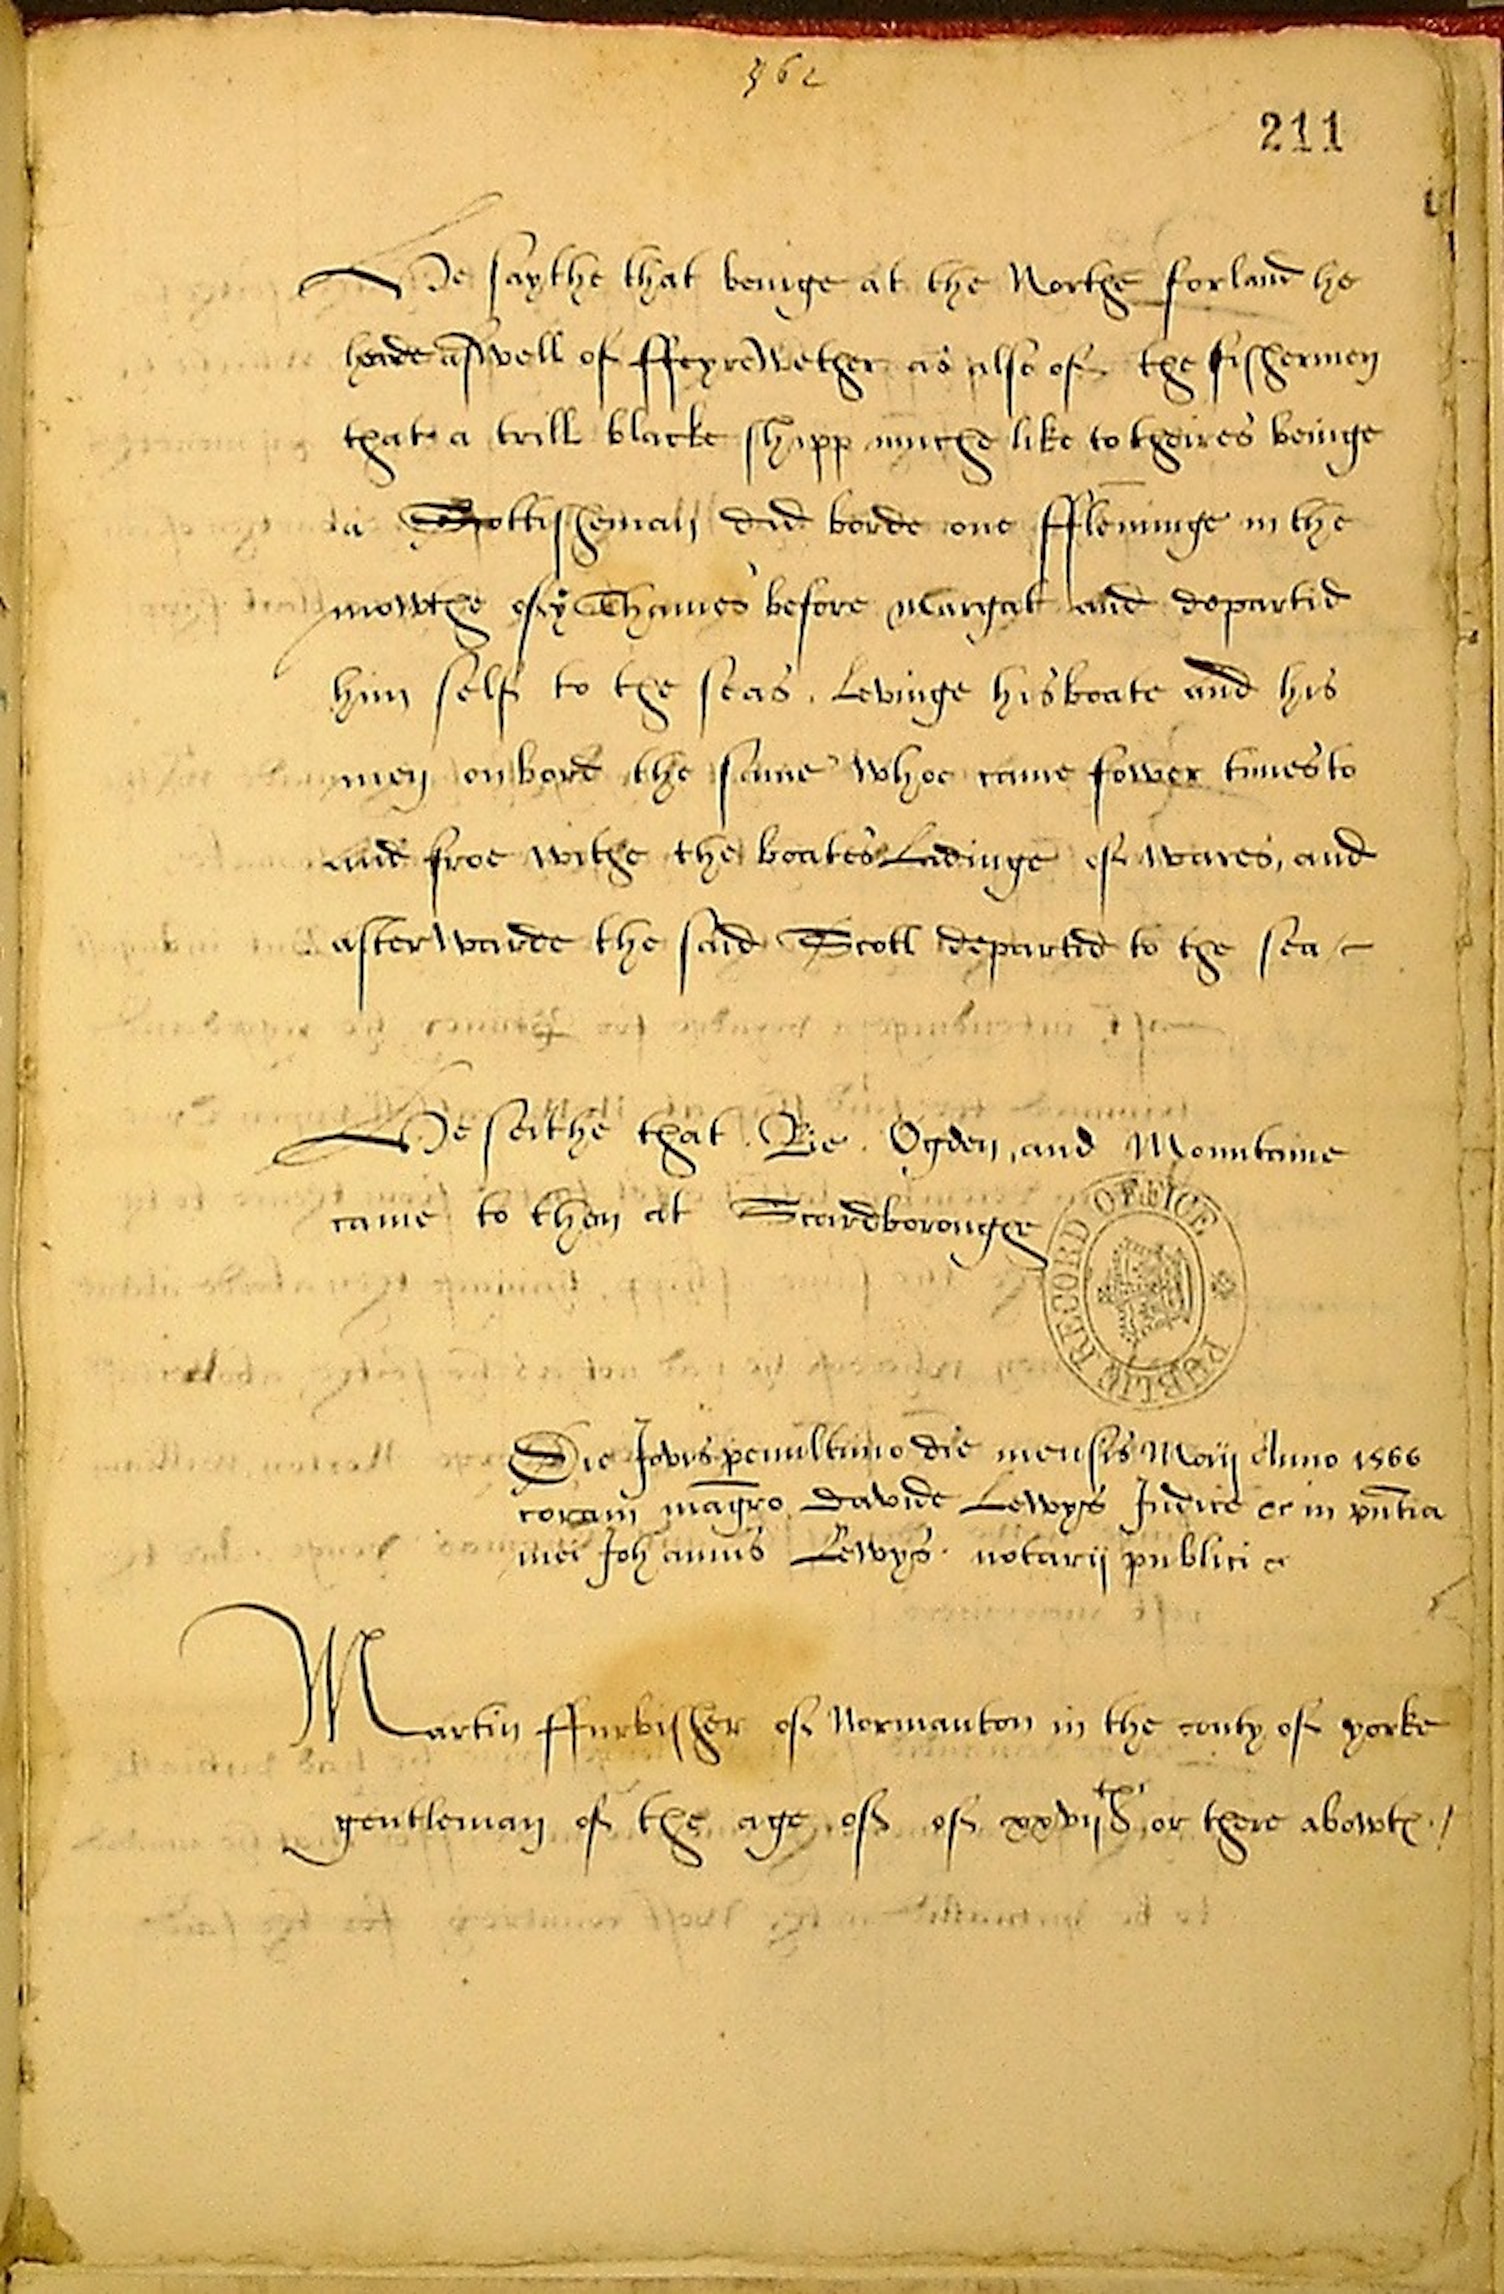 362
211
He saythe that beinge at the Northe forland he
herde aswell of ffeyrewether as also of the fishermen
that a trill blacke shipp muche like to theires beinge
a Scottisheman did borde one fflēminge in the
mowthe of yͤ Thames before Margat and departid
him self to the seas, Levinge his boate and his
men on bord the same whoe came fower times to
and froe withe the boates Ladinge of wares, and
afterwarde the said Scott departid to the sea
He seithe that Bie. Ogden, and Mountaine
came to them at Scardboroughe
PUBLIC RECORD OFFICE
Die Jovis penultimo die mensis Maij Anno 1566
coram magro Davide Lewys Judice &c in pntia
mei Johannis Lewys notarij publici &c
Martin ffurbisher of Normanton in the conty of yorke
gentleman of the age of of xxvijth or there abowte